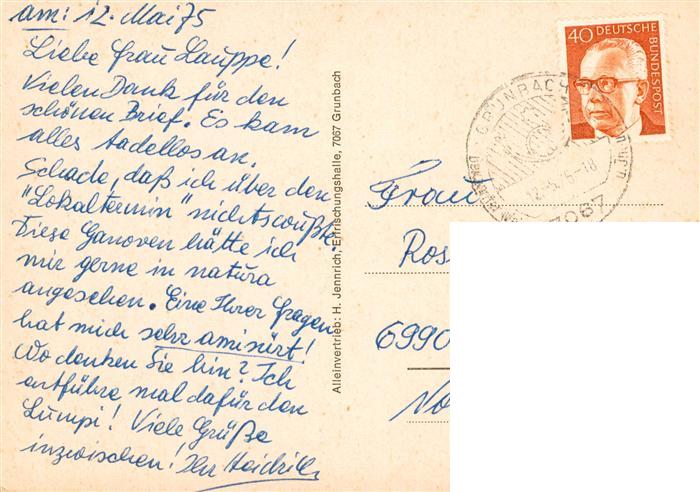 am: 12. Mai 75
Liebe Frau Lauppe!
Vielen Dank für den
schönen Brief. Es kam
alles tadellos an.
Schade, daß ich über den
"Lokaltermin" nichts wußte.
Diese Ganoven hätte ich
mir gerne in natura
angesehen. Eine Ihrer Fragen
hat mich sehr amüsiert!
Wo denken Sie hin? Ich
entführe mal dafür den
Lumpi! Viele Grüße
inzwischen! Ihr
Alleinvertrieb: H. Jennrich, Erfrischungshalle, 7067 Grunbach
40 DEUTSCHE BUNDESPOST
GRUNBACH
7067
Frau
Ros
6990